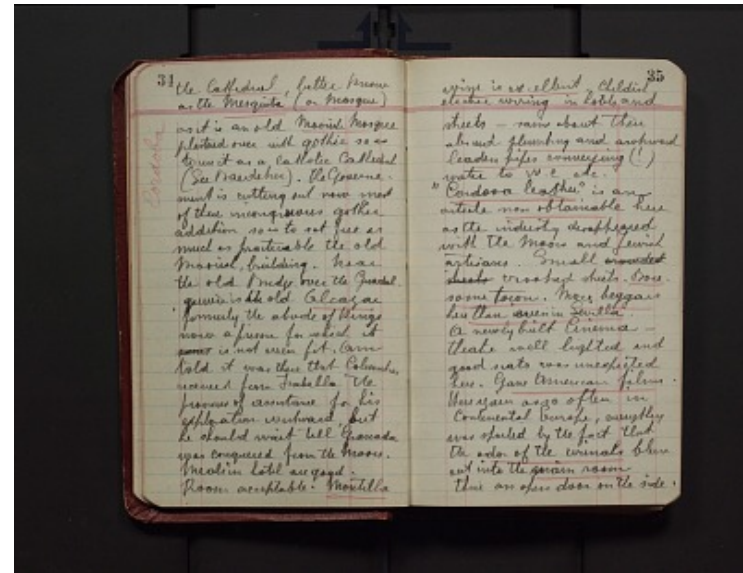 34
the Cathedral, better known
as the Mesquita (or Mosque)
Cordoba
as it is an old Moorish Mosque
plastered over with gothic so as
to use it as a Catholic Cathedral
(See Baedeker). The Govern-
ment is cutting out now most
of these incongruous gothic
addition so as to set free as
much as practicable the old
Moorish building. Near
the old Bridge over the Guadal-
quivir is the old Alcazar
formerly the abode of Kings
now a prison for which it
is not even fit. Am
told it was there that Columbus
received from Isabella the
promise of assistance for his
exploration westward, but
he should wait till Granada
was conquered from the Moors.
Meals in hotel are good.
Room acceptable. Montilla
35
wine is excellent. Childish
electric wiring in hotels and
streets – same about their
absurd plumbing and awkward
leaden pipes conveying (!)
water to W.C. etc.
"Cordova leather" is an
article now obtainable here
as the industry disappeared
with the Moors and Jewish
artisans. Small crowded
streets crooked streets. Bore-
some town. More beggars
here than even in Sevilla
A newly built Cinema –
theatre well lighted and
good seats was unexpected
here. Gave American films.
Here again as so often in
Continental Europe, everything
was spoiled by the fact that
the odor of the urinals blew
out into the main room
thru an open door on the side.